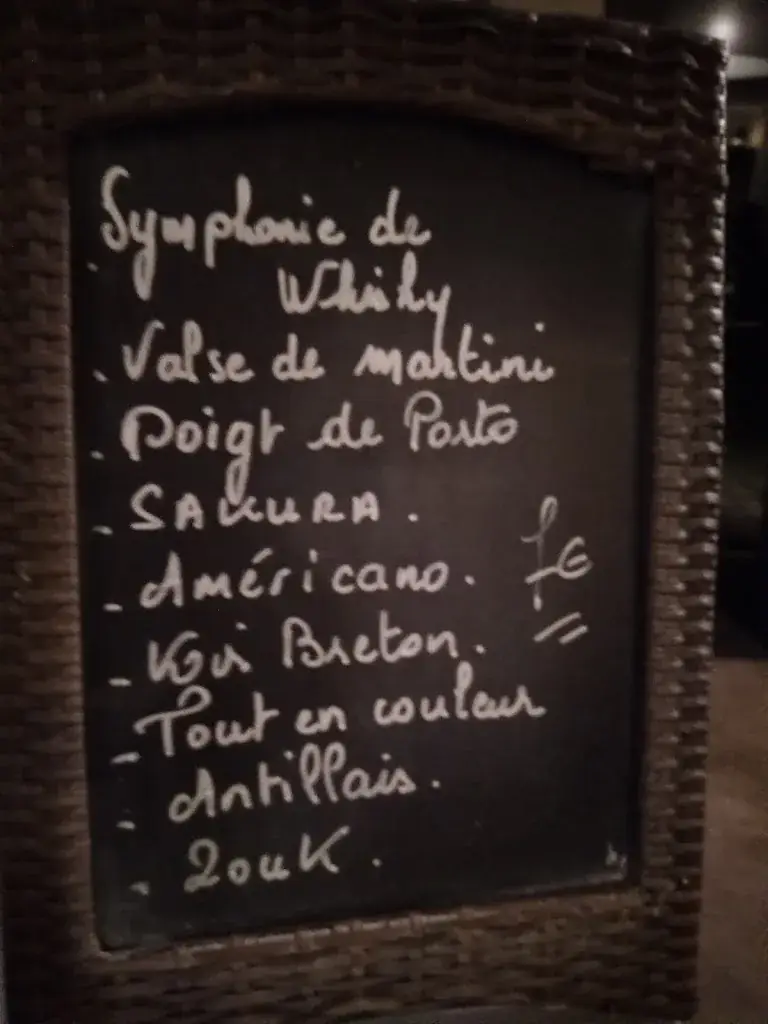 Symphonie de
Whisky
. Valse de martini
. Doigt de Porto
- SAKURA.
- Américano.
- Kir Breton.
- Tout en couleur
- Antillais.
- Zouk.